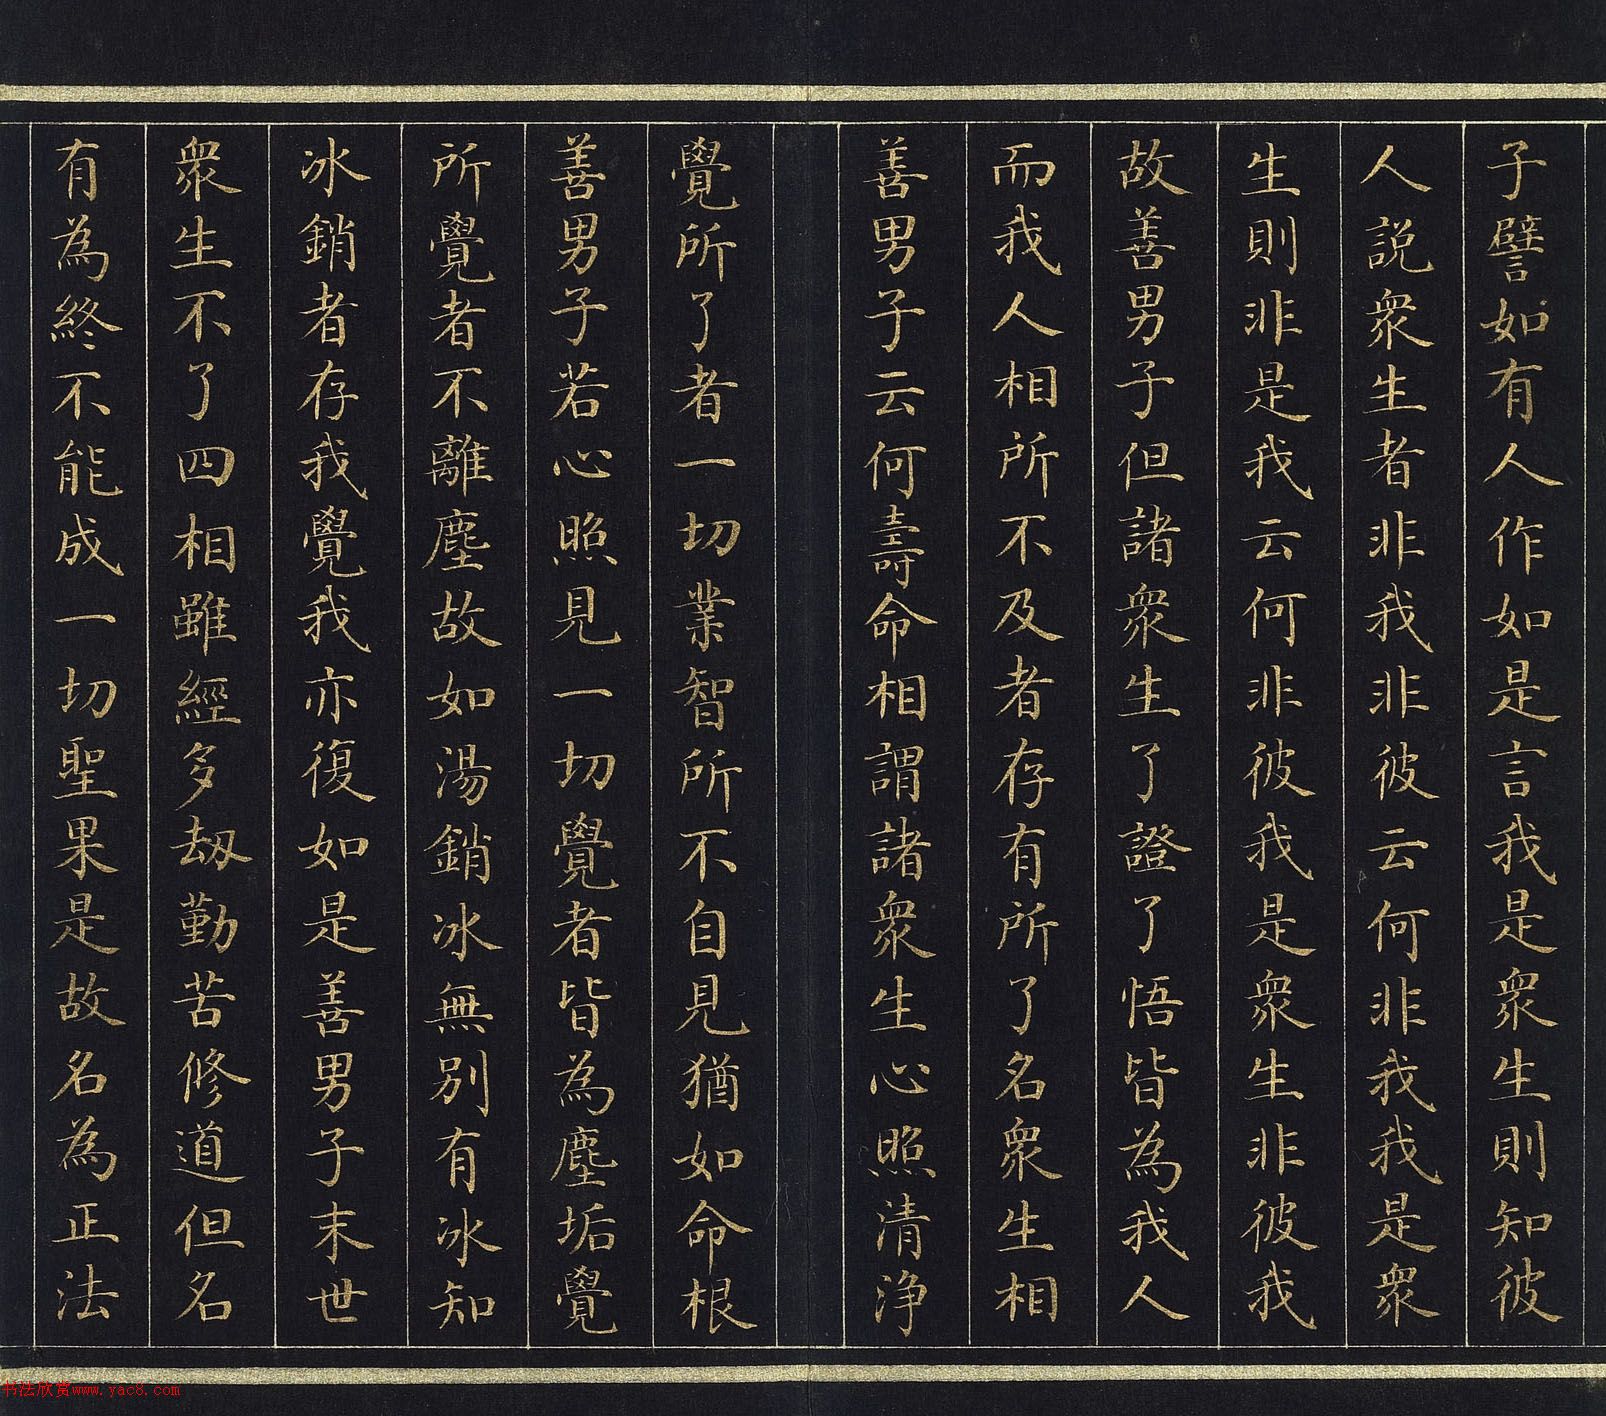 子譬如有人作如是言我是衆生則知彼
人說衆生者非我非彼云何非我我是衆
生則非是我云何非彼我是衆生非彼我
故善男子但諸衆生了證了悟皆為我人
而我人相所不及者存有所了名衆生相
善男子云何壽命相謂諸衆生心照清淨
覺所了者一切業智所不自見猶如命根
善男子若心照見一切覺者皆為塵垢覺
所覺者不離塵故如湯銷冰無別有冰知
冰銷者存我覺我亦復如是善男子末世
衆生不了四相雖經多劫勤苦修道但名
有為終不能成一切聖果是故名為正法
书法欣赏www.yac8.com